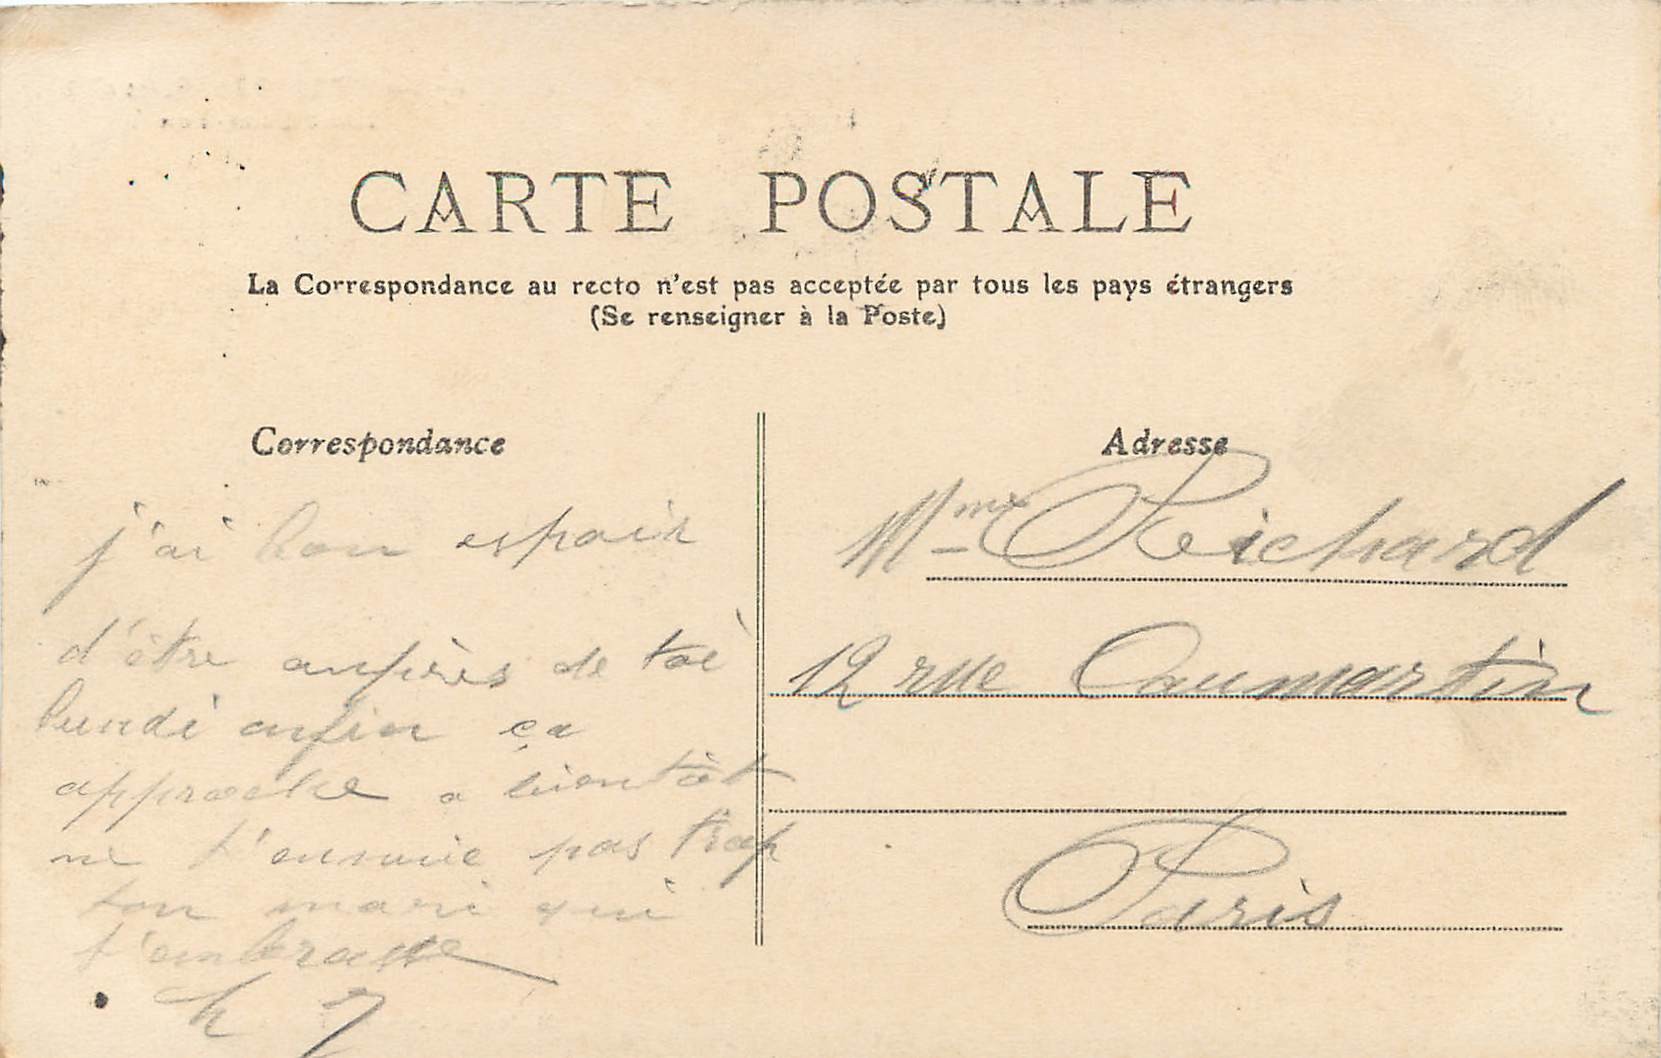 CARTE POSTALE
La Correspondance au recto n'est pas acceptée par tous les pays étrangers
(Se renseigner à la Poste)
Correspondance
j'ai bon espoir
d'être auprès de toi
lundi enfin ça
approche a bientôt
ne t'ennuie pas trop
ton mari qui
t'embrasse
Adresse
Mme Richard
12 rue Caumartin
Paris